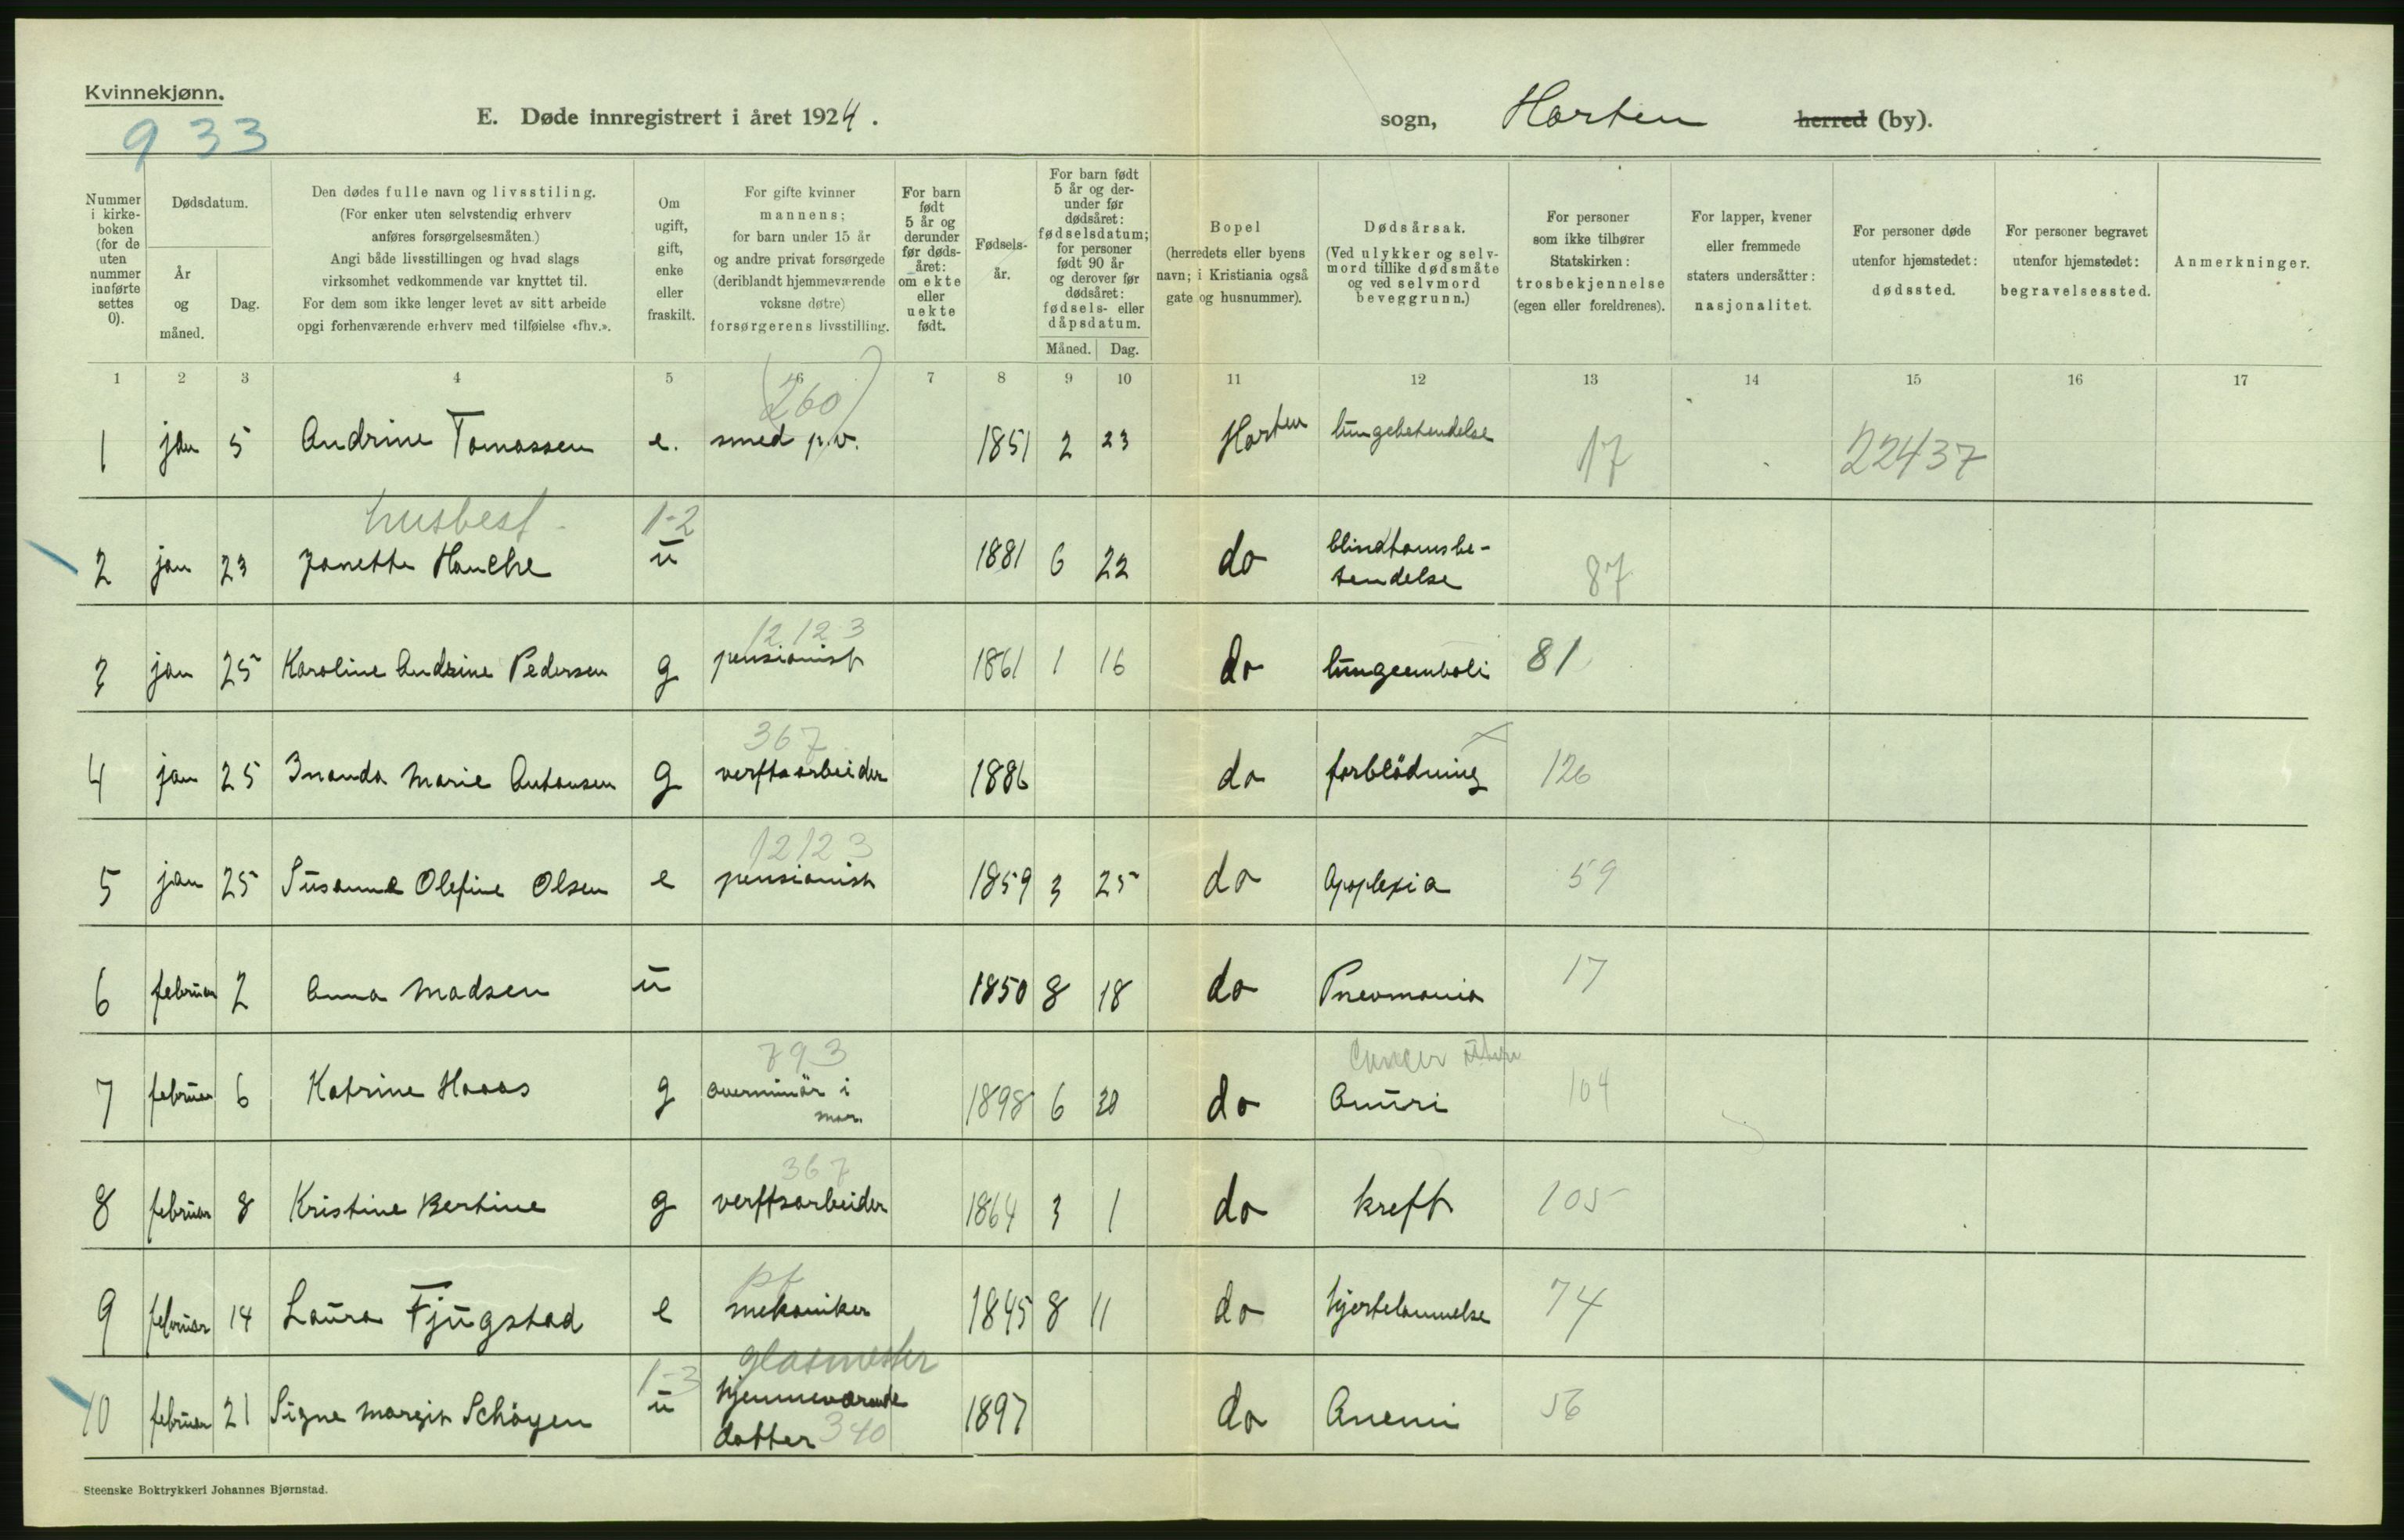 Kvinnekjønn.
933
E. Døde innregistrert i året 1924.
sogn, Horten herred (by).
Nummer i kirkeboken (for de uten nummer innførte settes 0).
Dødsdatum.
År og måned.
Dag.
Den dødes fulle navn og livsstiling.
(For enker uten selvstendig erhverv
anføres forsørgelsesmåten.)
Angi både livsstillingen og hvad slags
virksomhet vedkommende var knyttet til.
For dem som ikke lenger levet av sitt arbeide
opgi forhenværende erhverv med tilføielse «fhv.».
Om ugift, gift, enke eller fraskilt.
For gifte kvinner
mannens;
for barn under 15 år
og andre privat forsørgede
(deriblandt hjemmeværende
voksne døtre)
forsørgerens livsstilling.
For barn født 5 år og derunder før dødsåret: om ekte eller uekte født.
Fødselsår.
For barn født 5 år og derunder før dødsåret: fødselsdatum; for personer født 90 år og derover før dødsåret: fødsels- eller dåpsdatum.
Måned. Dag.
Bopel
(herredets eller byens
navn; i Kristiania også
gate og husnummer).
Dødsårsak.
(Ved ulykker og selv-
mord tillike dødsmåte
og ved selvmord
beveggrunn.)
For personer
som ikke tilhører
Statskirken:
trosbekjennelse
(egen eller foreldrenes).
For lapper, kvener
eller fremmede
staters undersåtter:
nasjonalitet.
For personer døde
utenfor hjemstedet:
dødssted.
For personer begravet
utenfor hjemstedet:
begravelsessted.
Anmerkninger.
1 2 3 4 5 6 7 8 9 10 11 12 13 14 15 16 17
(260)
1 jan 5 Andrine Tomassen e. smed p.v. 1851 2 23 Horten lungebetendelse 17 22437
husbest. 1-2
2 jan 23 Janette Hauche u 1881 6 22 do blindtarmsbe-
tendelse 87
12123
3 jan 25 Karoline Andrine Pedersen g pensionist 1861 1 16 do lungeemboli 81
367
4 jan 25 Inanda Marie Antonsen g verftsarbeider 1886 do forblödning 126
12123
5 jan 25 Susanna Olefine Olsen e pensionist 1859 3 25 do Apoplexia 59
6 februar 2 Anna Madsen u 1850 8 18 do Pneomonia 17
793 Cancer
7 februar 6 Katrine Haaas g overminör i
mar. 1898 6 30 do Anuri 104
367
8 februar 8 Kristine Bertine g verftsarbeider 1864 3 1 do kreft 105
pf
9 februar 14 Laura Fjugstad e mekaniker 1845 8 11 do hjertelammelse 74
1-3 glasmester
10 februar 21 Signe Margit Schöyen u hjemmeværende
datter 340 1897 do Anemi 56
Steenske Boktrykkeri Johannes Bjørnstad.